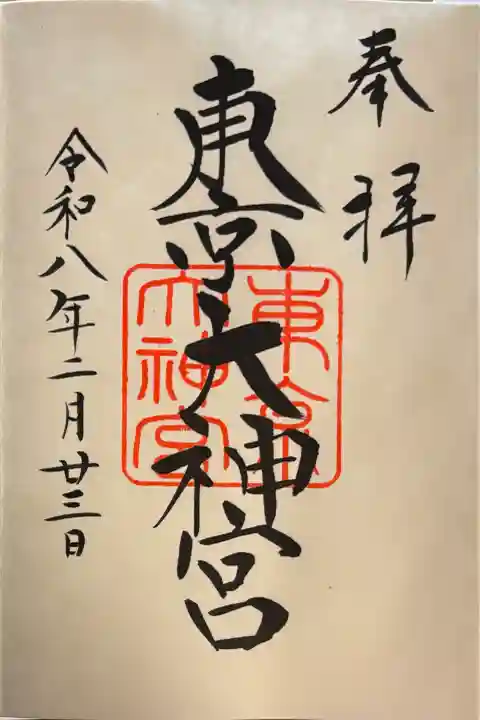 奉拝
東京大神宮
東京大神宮
令和八年二月廿三日